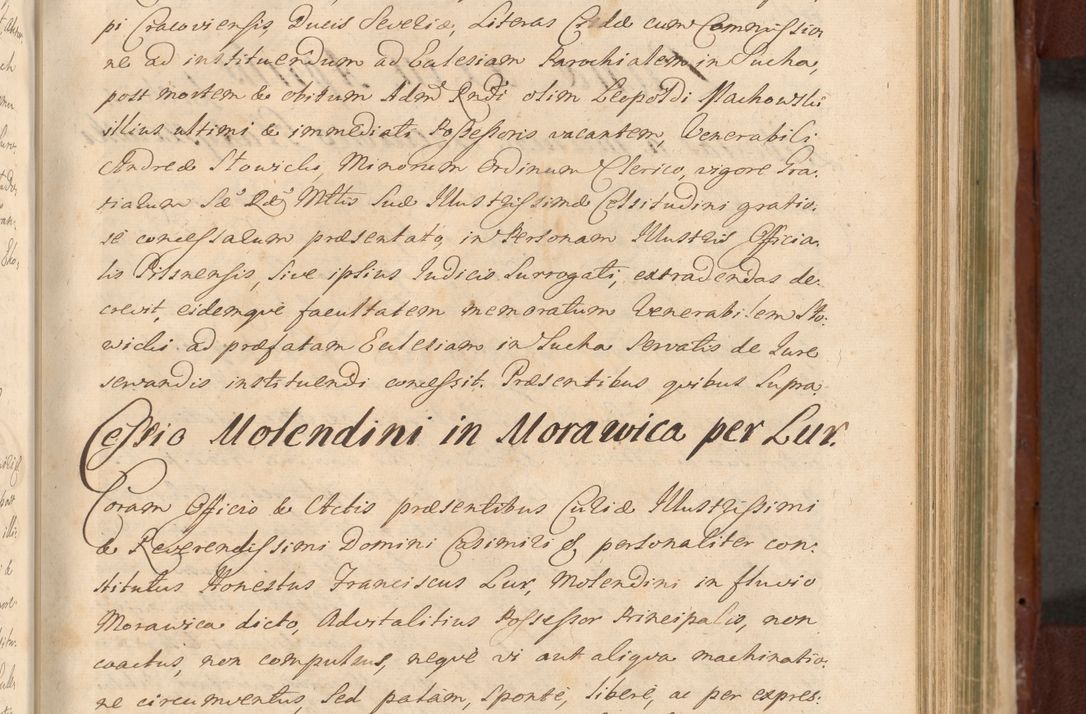 pi Cracoviensis, Ducis Severiæ, Literas Cædæ cum Commissio
ne ad instituendum ad Ecclesiam Parochialem in Sucha,
post mortem & obitum Admdi Rndi olim Leopoldi Machowski
illius ultimi & immediati Possessoris vacantem, Venerabili
Andreæ Stowicki, Minorum Ordinum Clerico, vigore Pra-
tiarum Sæ Ræ Mttis Suæ Illustrissimæ Celsitudini gratio-
se concessarum præsentato, in Personam Illustris Officia-
lis Pilsnensis, sive ipsius Iudicis Surrogati, extradendas de-
crevit, eidemque facultatem memoratum Venerabilem Sto-
wicki ad præfatam Ecclesiam in Sucha servatis de Iure
servandis instituendi concessit. Præsentibus quibus Supra.
Cessio Molendini in Morawica per Lur.
Coram Officio & Actis præsentibus Curiæ Illustrissimi
& Reverendissimi Domini Casimiri & personaliter con-
stitutus Honestus Franciscus Lur, Molendini in fluvio
Morawica dicto, Advitalitius Possessor Principalis, non
coactus, non compulsus, neque vi aut aliqva machinatio-
ne circumventus, sed palam, sponte, libere, ac per expres-